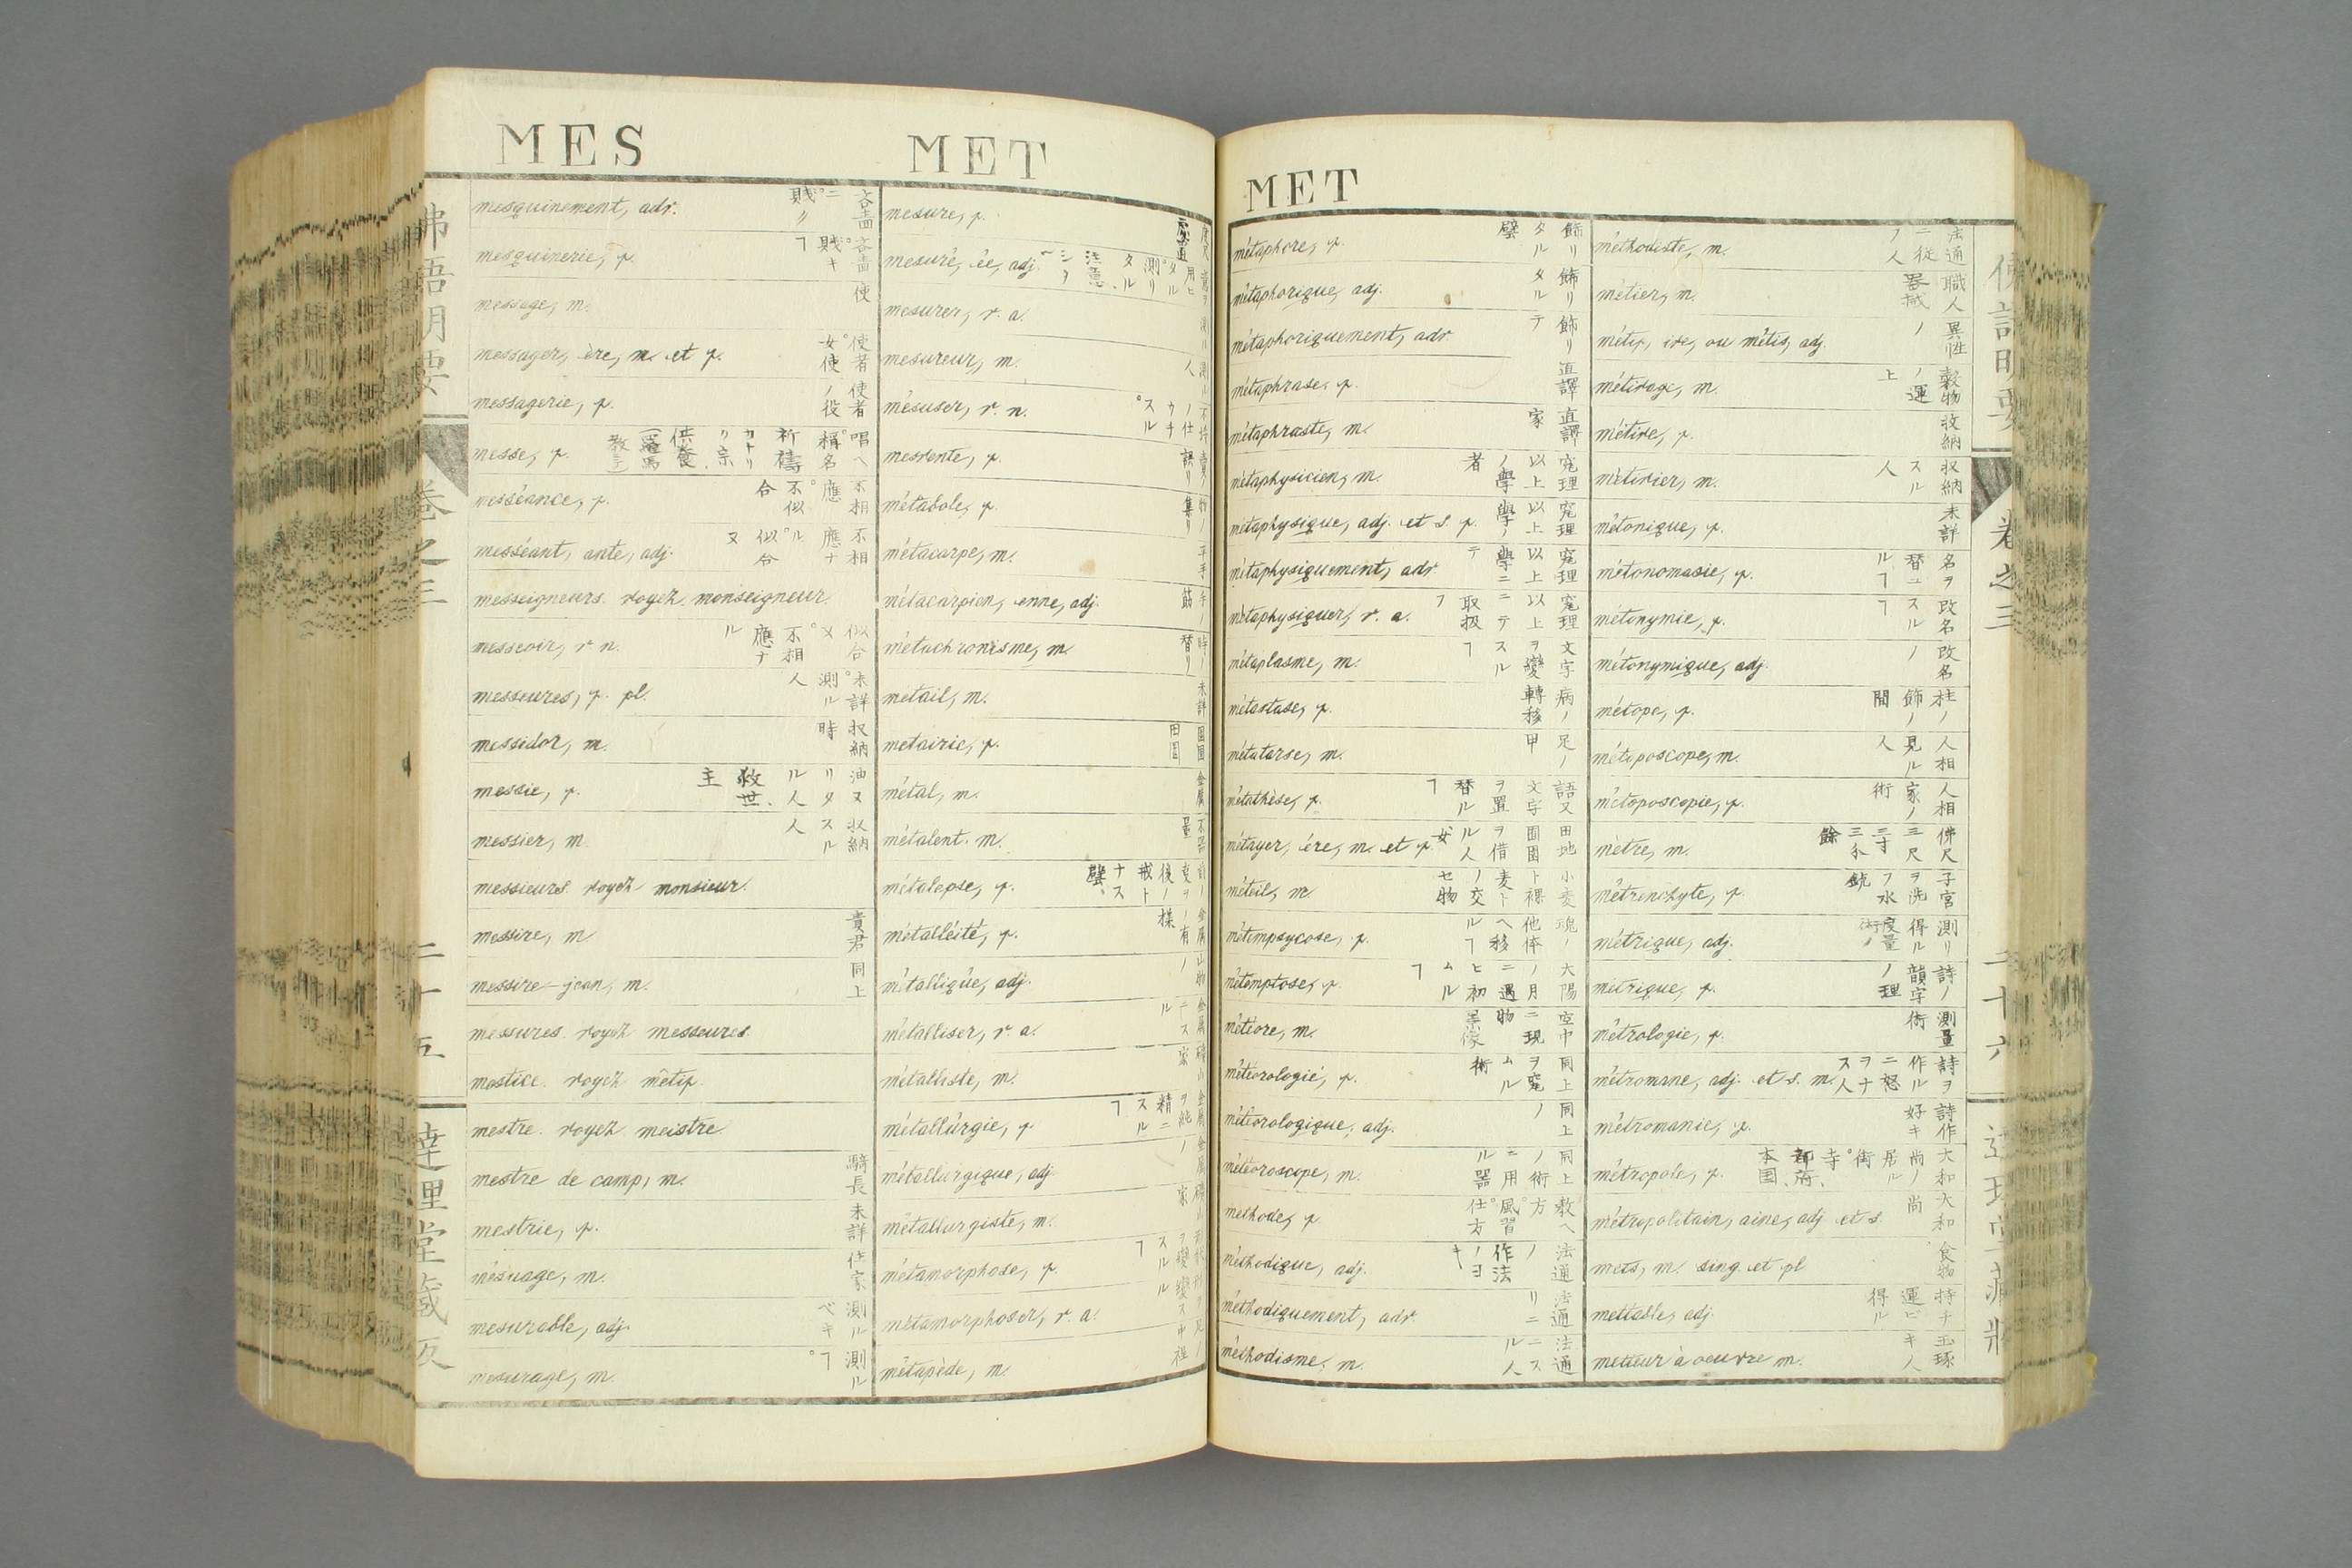 MES MET
mesquinement, adv. 吝嗇ニ。賎〃
mesquinerie, f. 吝嗇。賎キヿ
message, m. 使
messager, ère, m. et f. 使者。女使
messagerie, f. 使者ノ役
messe, f. 唱ヘ。稱名 祈禱 カトリク宗 供養
messéance, f. 不相應。不似合
messéant, ante, adj. 不相應ナル。似合ヌ
messeigneurs. voyez. monseigneur.
messeoir, v. n. 似合ヌ。不相應ナル
messeures, f. pl. 未詳。測ル人
messidor, m. 収納時
messie, f. 油ヌリタル人 救世主
messier, m. 収納スル人
messieurs. voyez monsieur.
messire, m. 貴君
messire-jean, m. 同上
messures. voyez messeures.
mestice. voyez métif.
mestre. voyez meistre
mestre de camp, m. 騎長
mestrie, f. 未詳
mésuage, m. 住家
mesurable, adj. 測ルベキ
mesurage, m. 測ルヿ。
mesure, f.
mesuré, ée, adj. 用ヒタル。測リタル 注意シタ
mesurer, v. a. 測ル
mesureur, m. 測ル人
mésuser, v. n.
mévente, f.
métabole, f.
métacarpe, m. 平手
métacarpien, enne, adj. 手ノ筋
métachronisme, m. 時ノ替リ
metail, m. 未詳
metairie, f. 田園
métal, m. 金属
métalent. m. 不器量
métalepse, f.
métalléité, f. 金属ノ有様
métallique, adj. 山物ノ
métalliser, v. a. 金属ニスル
métalliste, m. 礦山家
métallurgie, f. 金属ヲ純精ニスルヿ
métallurgique, adj. 金属ノ
métallurgiste, m. 礦山家
métamorphose, f. 形状ヲ變スルヿ
métamorphoser, v. a.
métapède, m. 足ノ中程
MET
métaphore, f. 飾リタル譬
métaphorique, adj. 飾リタル
métaphoriquement, adv. 飾リテ
métaphrase, f. 直譯
métaphraste, m. 直譯家
métaphysicien, m. 窮理以上ノ學者
métaphysique, adj. et s. f. 窮理以上ノ學
métaphysiquement, adv. 窮理以上學ニテ
métaphysiquer, v. a. 窮理以上ニテ取扱フ
métaplasme, m. 文字ヲ變スルヿ
métastase, f. 病ノ轉移
métatarse, m. 足ノ甲
métathèse, f. 語又文字ヲ置替ルヿ
métayer, ère, m. et f. 田地園囿ヲ借ル人 女
méteil, m. 小麦ト裸麦トノ交セ物
métempsycose, f. 魂ノ他体ヘ移ルヿ
métemptose, f. 大陽ノ月ニ遇ヒ初ムルヿ
météore, m. 空中ニ現物 景像
météorologie, f. 同上ヲ窮ムル術
météorologique, adj. 同上ノ
météoroscope, m. 同上ノ術ニ用ル器
méthode, f. 教ヘ方。風習。仕方
méthodique, adj. 法通ノ 作法ノヨキ
méthodiquement, adv. 法通リニ
méthodisme, m. 法通ニスル人
méthodiste, m. 法通ニ従フ人
métier, m. 職人 器械
métif, ive, ou métis, adj. 異性ノ
métivage, m. 穀物ノ運上
métive, f. 收納
métivier, m. 収納スル人
métonique, f. 未詳
métonomasie, f. 名ヲ替ユルヿ
métonymie, f. 改名スルヿ
métonymique, adj. 改名ノ
métope, f. 柱ノ飾ノ間
métoposcope, m. 人相見ル人
métoposcopie, f. 人相家ノ術
mètre, m. 佛尺 三尺三寸三分餘
métrenchyte, f. 子宮ヲ洗フ水銃
métrique, adj. 測リ得ル 度量術ノ
métrique, f. 詩ノ韻字ノ理
métrologie, f. 測量術
métromane, adj. et s. m. 詩ヲ作ルニ怒ヲナス人
métromanie, f. 詩作好キ
métropole, f. 大和尚ノ居ル街。寺 都府、本国
métropolitain, aine, adj. et s. 大和尚
mets, m. sing. et pl. 食物
mettable, adj. 持チ運ビ得ル
metteur à oeuvre m. 玉琢キ人
卷之三
二十五
卷之三
二十六